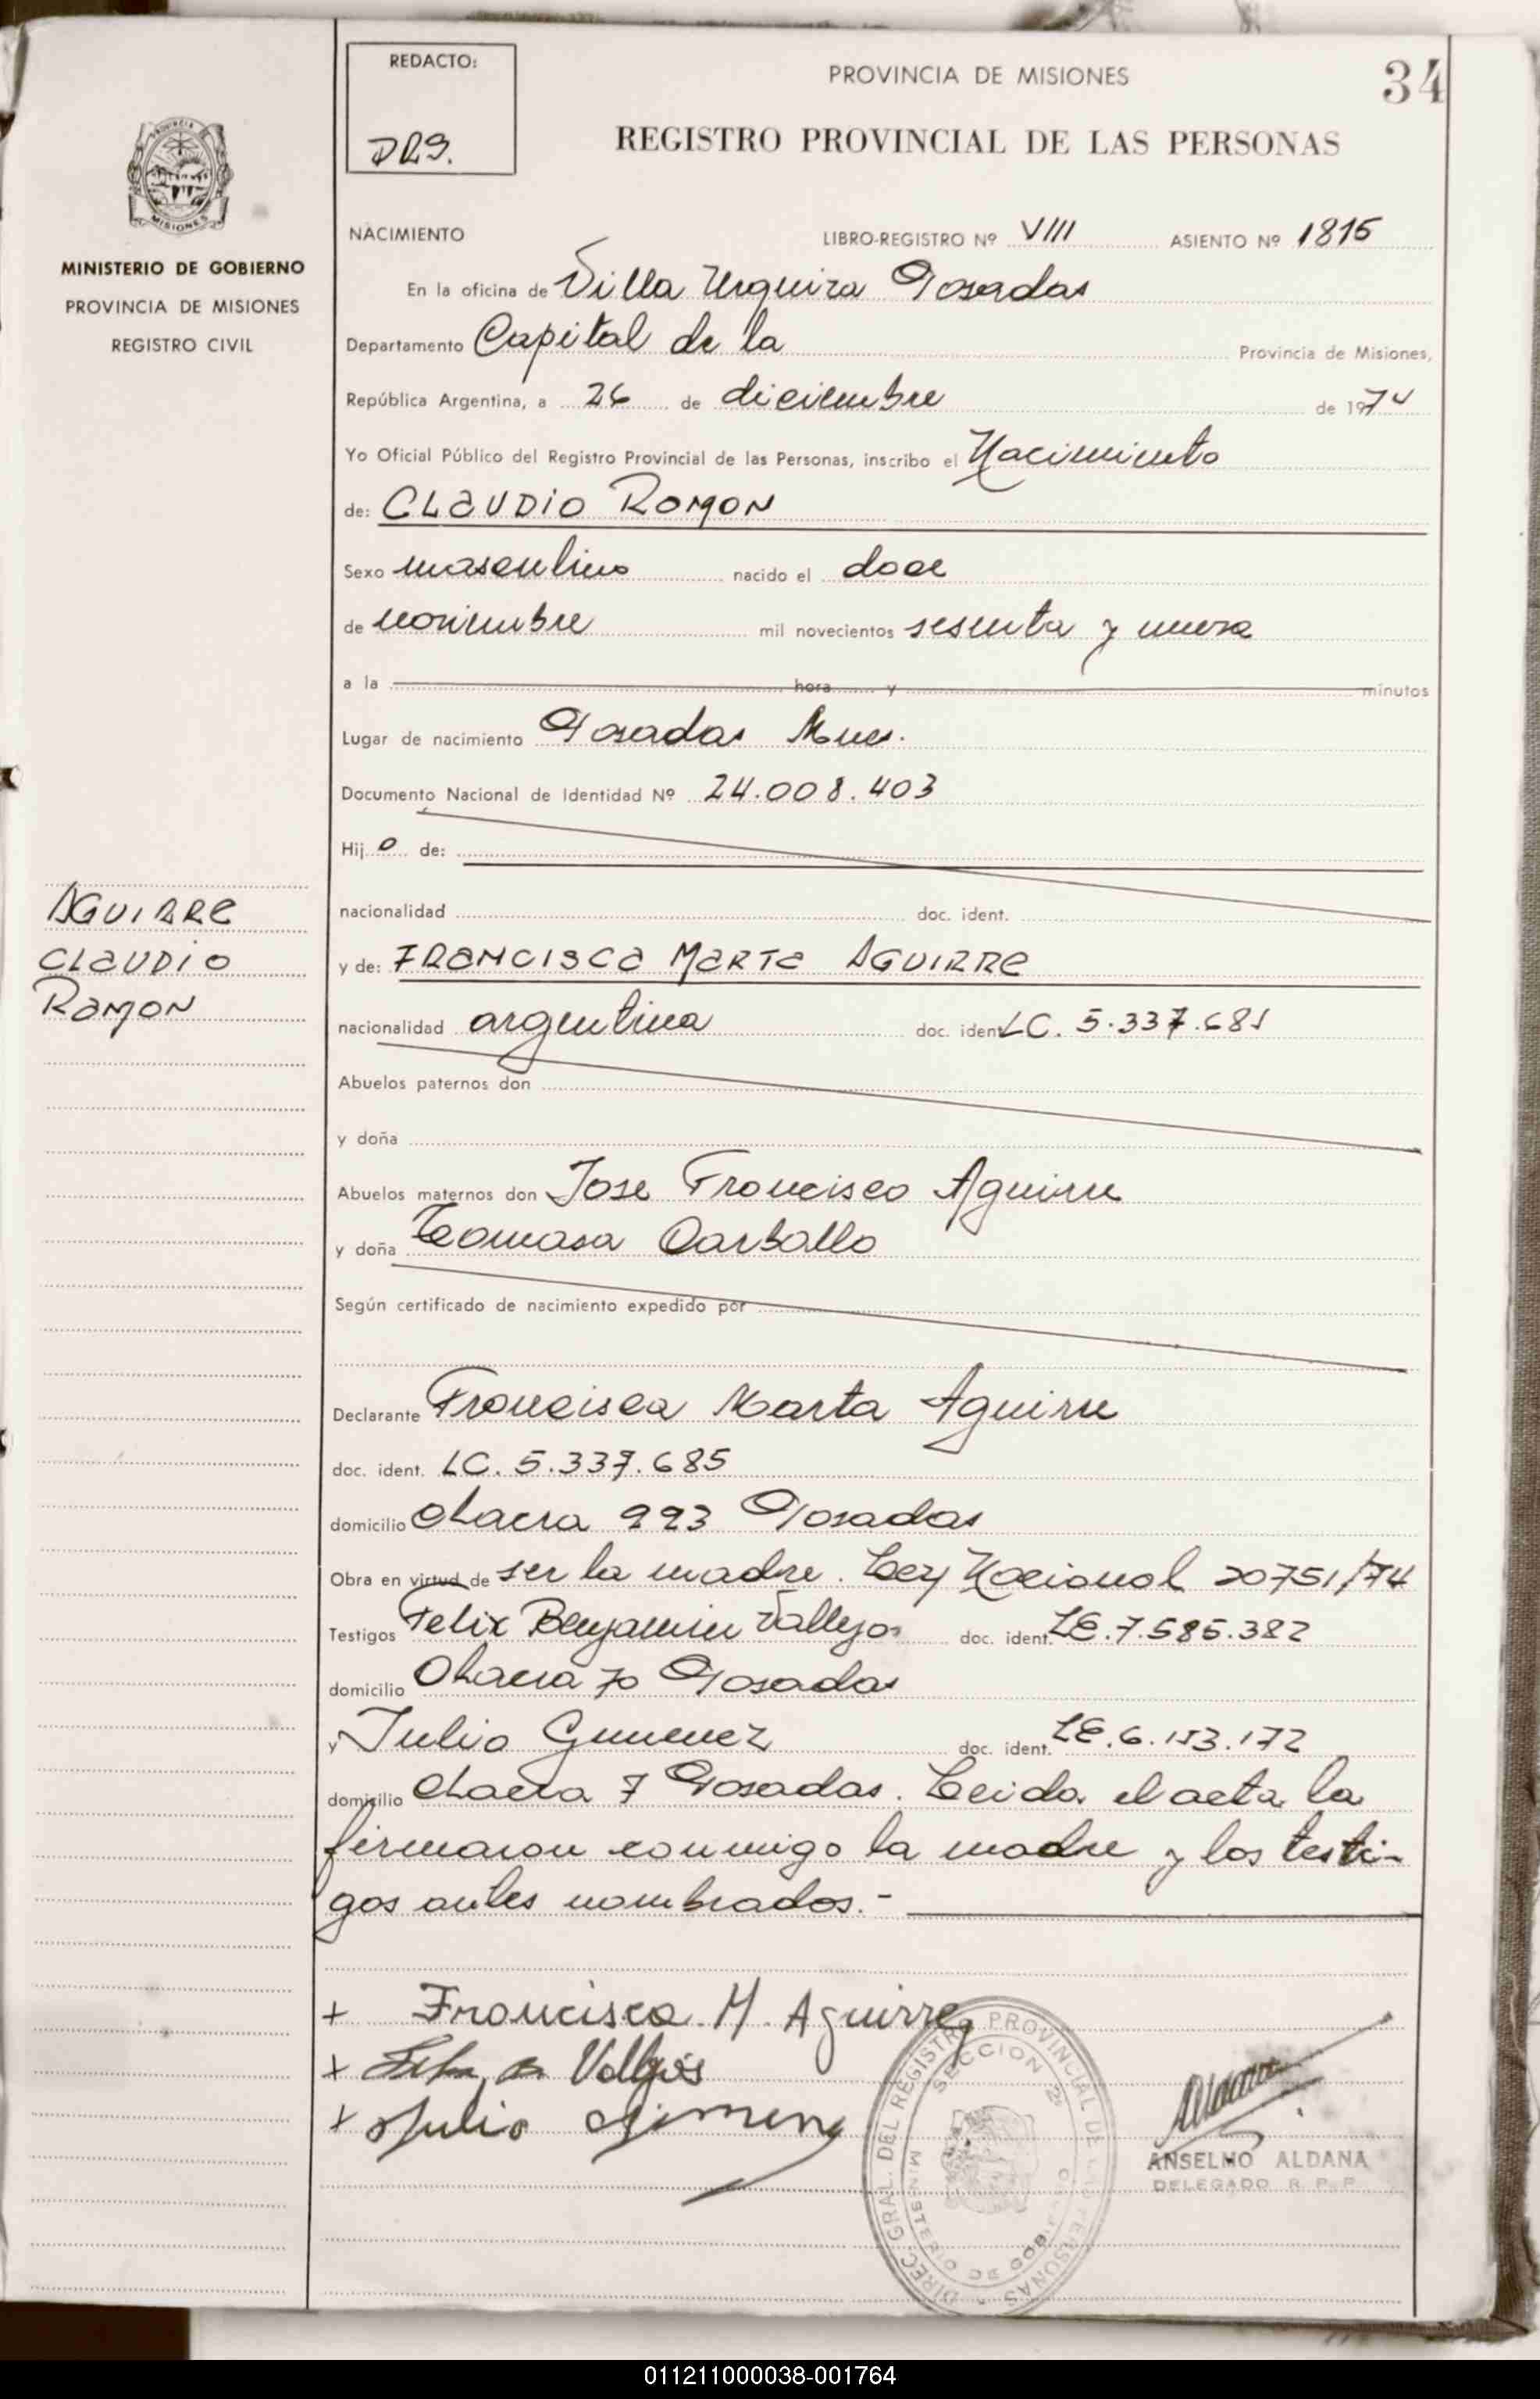 34
REDACTO:
DRG.
PROVINCIA DE MISIONES
REGISTRO PROVINCIAL DE LAS PERSONAS
MISIONES
MINISTERIO DE GOBIERNO
PROVINCIA DE MISIONES
REGISTRO CIVIL
NACIMIENTO LIBRO-REGISTRO Nº VIII ASIENTO Nº 1815
En la oficina de Villa Urquiza Posadas
Departamento Capital de la Provincia de Misiones,
República Argentina, a 26 de diciembre de 1974
Yo Oficial Público del Registro Provincial de las Personas, inscribo el Nacimiento
de: CLAUDIO RAMON
Sexo masculino nacido el doce
de noviembre mil novecientos sesenta y nueve
a la hora y minutos
Lugar de nacimiento Posadas Mnes.
Documento Nacional de Identidad Nº 24.008.403
Hijo de:
nacionalidad doc. ident.
AGUIRRE
CLAUDIO
RAMON
y de: FRANCISCA MARTA AGUIRRE
nacionalidad argentina doc. ident LC. 5.337.685
Abuelos paternos don
y doña
Abuelos maternos don Jose Francisco Aguirre
y doña Tomasa Carballo
Según certificado de nacimiento expedido por
Declarante Francisca Marta Aguirre
doc. ident. LC. 5.337.685
domicilio Chacra 993 Posadas
Obra en virtud de ser la madre. Ley Nacional 20751/74
Testigos Felix Benjamin Vallejos doc. ident. LE.7.585.382
domicilio Chacra 70 Posadas
y Julio Gimenez doc. ident. LE.6.153.172
domicilio Chacra 7 Posadas. Leida el acta la
firmaron conmigo la madre y los testi-
gos antes nombrados.-
+ Francisca M. Aguirre
+ B. Vallejos
+ Julio Gimenez
DIREC. GRAL. DEL REGISTRO PROVINCIAL DE LAS PERSONAS
SECCION 2ª
MINISTERIO DE GOBIERNO
Aldana
ANSELMO ALDANA
DELEGADO R. P. P.
011211000038-001764